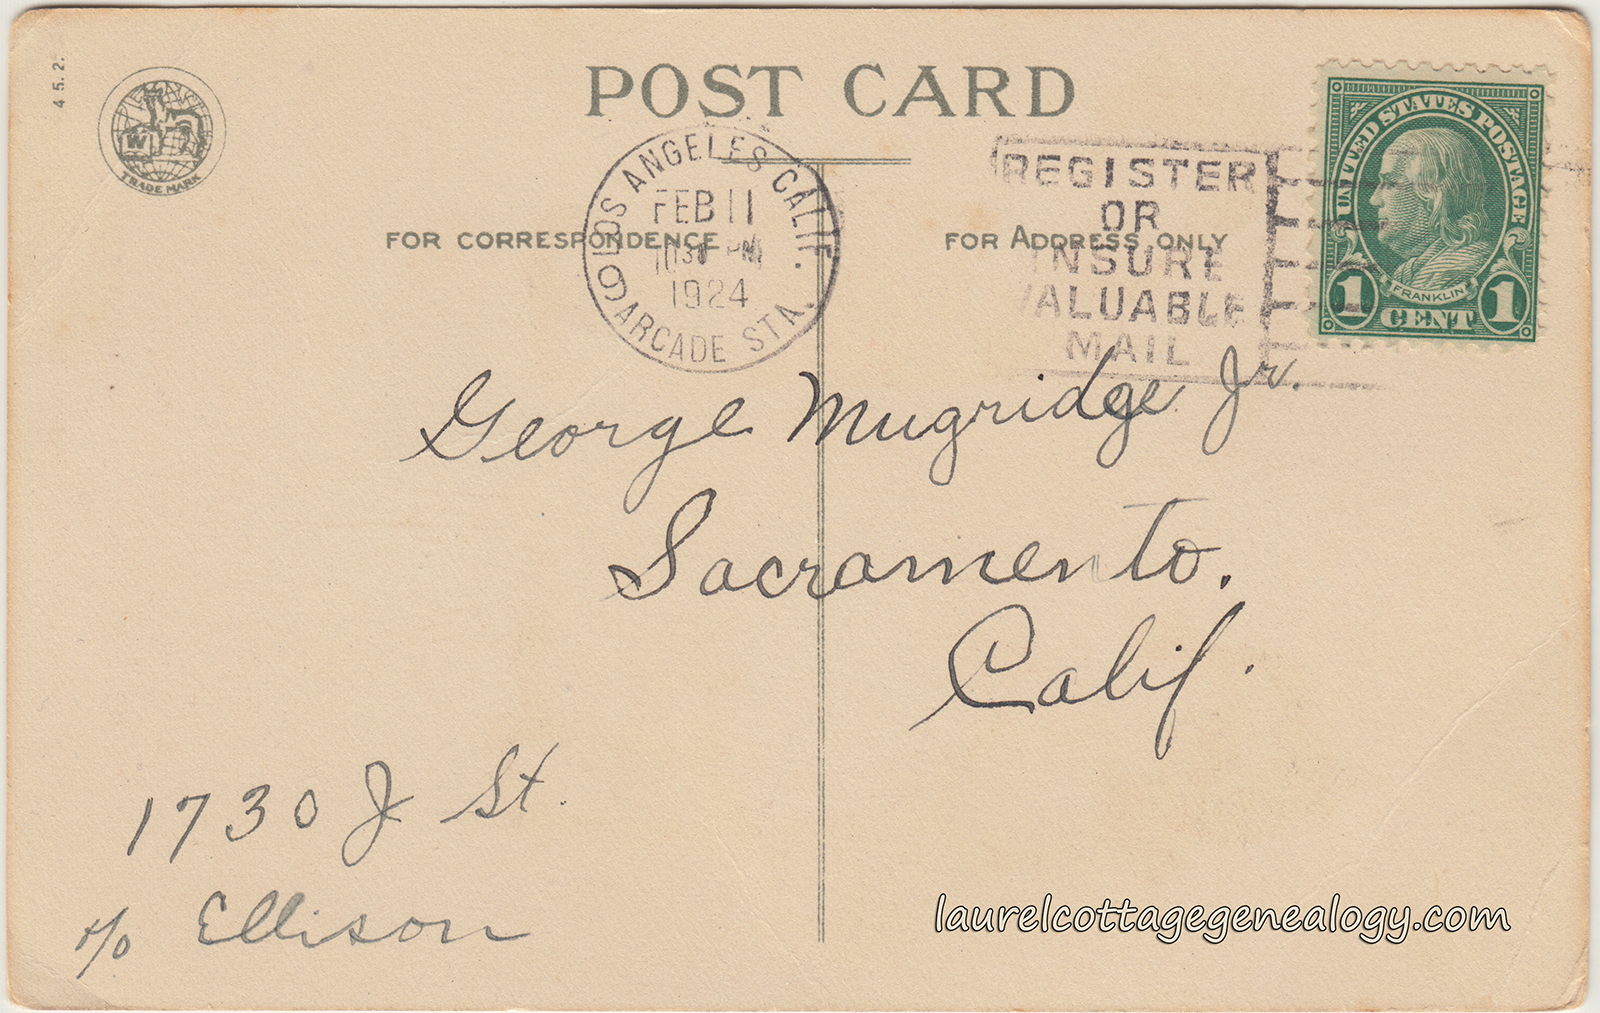 4 5. 2.
W
TRADE MARK
POST CARD
LOS ANGELES CALIF.
FEB 11
10 30 PM
1924
9 ARCADE STA.
REGISTER
OR
INSURE
VALUABLE
MAIL
UNITED STATES POSTAGE
FRANKLIN
1 CENT 1
FOR CORRESPONDENCE
FOR ADDRESS ONLY
George Mugridge Jr.
Sacramento.
Calif.
1730 J St.
c/o Ellison
laurelcottagegenealogy.com